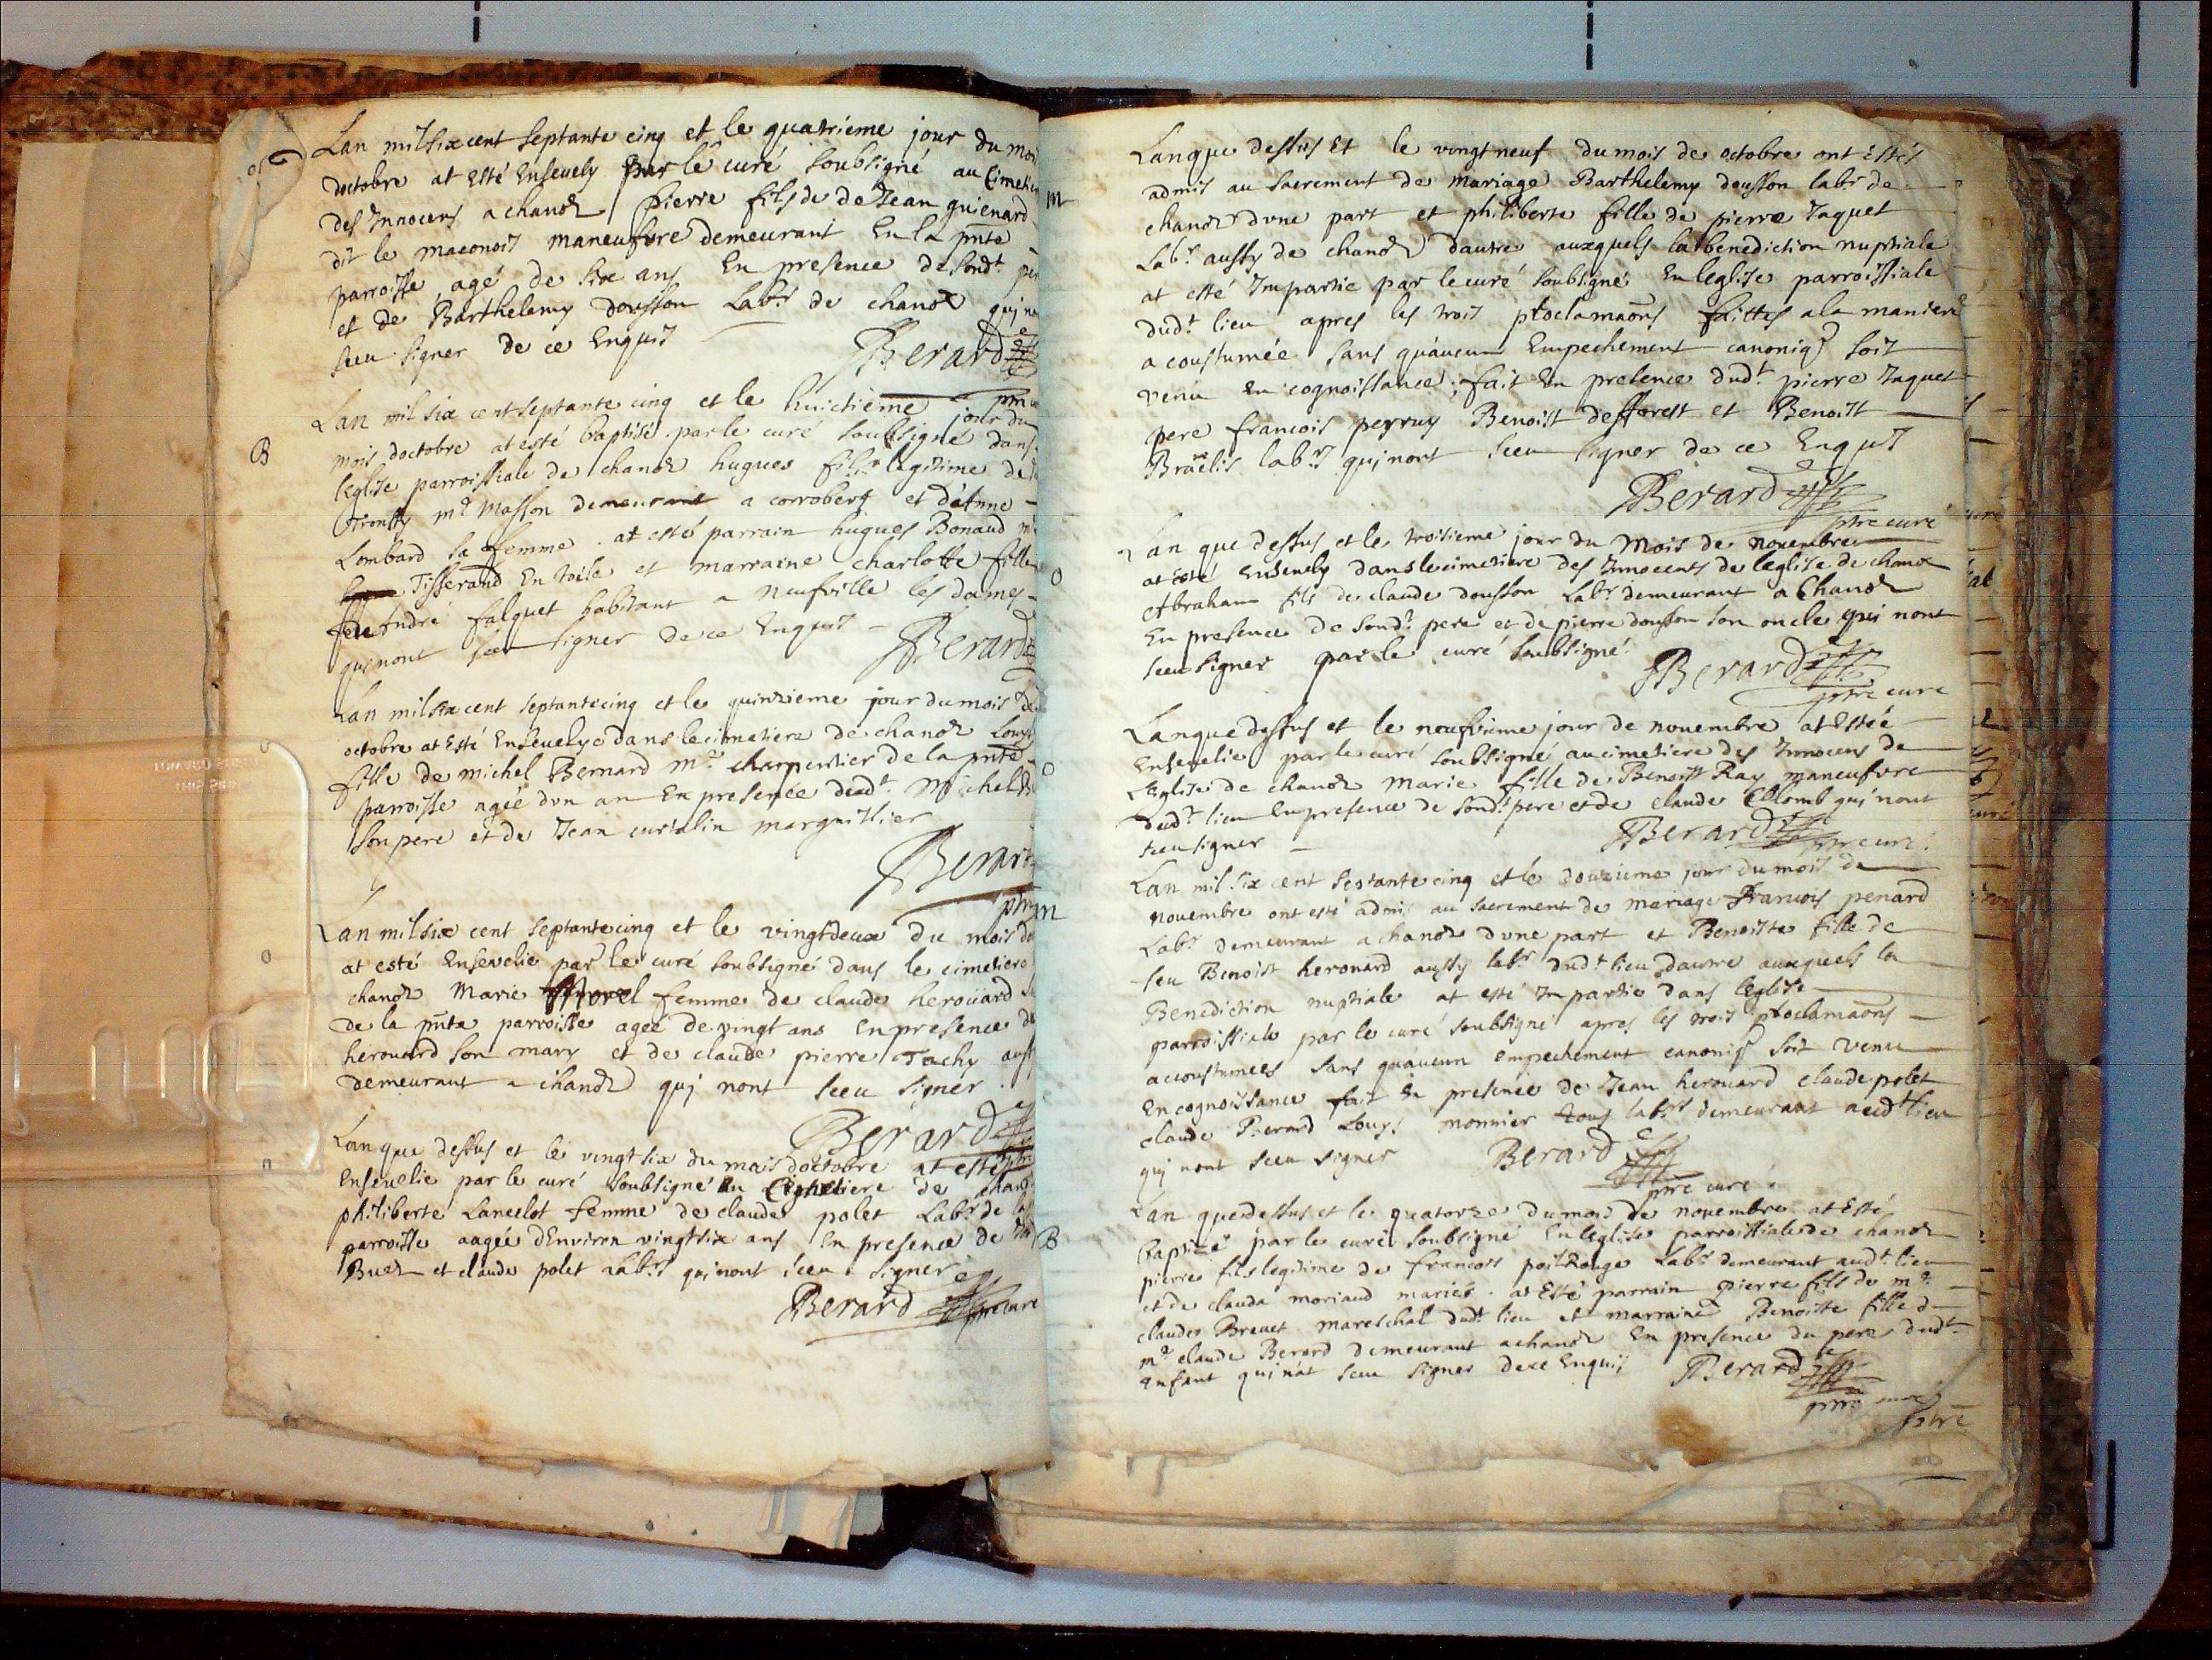 Lan mil six cent septante cinq et le quatrieme jour du mois
doctobre at esté Ensevely par le curé soubsigné au Cimetie
des Innocens a chanoz pierre fils de de Jean guienard
dit le maconois maneufvre demeurant En la pnte
parroisse, agé de six ans En presence de sondt. per
et de Barthelemy dousson Labr. de chanoz quj n
sceu signer de ce Enquis
Berard
B
Lan mil six cent septante cinq et le huictième jour du
mois doctobre at esté baptisé par le curé soubsigné dans
leglise parroissiale de chanoz hugues fils legitime de
me. masson demeurant a corroberg et d'Anne
Lombard sa femme. at esté parrain hugues Bonaud
Tisserand En toile et marraine charlotte fille
de André falquet habitant a neufville les dames
qui nont sceu signer de ce Enquis
Berard
Lan mil six cent septante cinq et le quinzieme jour du mois de
octobre at Esté Ensevelye dans le cimetiere de chanoz Louyse
fille de michel Bernard me. charpentier de la pnte
parroisse agée dun an En presence dudt. Michel
son pere et de Jean curialin marguillier
Berard
Lan mil six cent septante cinq et le vingtdeux du mois
at esté Ensevelie par le curé soubsigné dans le cimetiere
chanoz Marie Morel femme de claude herouard
de la pnte parroisse agée de vingt ans En presence d
herouard son mary et de claude pierre Tachy auss
demeurant a chanoz quj nont sceu signer.
Berard
Lan que dessus et le vingt six du mois doctobre at esté
Ensevelie par le curé soubsigné au Cimetiere de chan
philiberte Lancelot femme de claude polet Labr. de la
parroisse aagée dEnviron vingtsix ans En presence de
Buez et claude polet Labrs. qui nont sceu signer
Berard ptre curé
m
Lan que dessus Et le vingt neuf du mois de octobre ont Estés
admis au sacrement de mariage Barthelemy dousson labr. de
chanoz dune part et philiberte fille de pierre Jaquet
Labr. aussy de chanoz dautre auxquels la benediction nuptiale
at esté Impartie par le curé soubsigné En leglise parroissiale
dudt. lieu apres les trois ptoclamaõns faittes a la maniere
a coustumée sans quaucun Empechement canoniq. soit
venu en cognoissance; fait En presence dudt. pierre Jaquet
pere francois perruy Benoist defforest et Benoist
labrs. quj nont sceu signer de ce Enquis
Berard
ptre curé
O
Lan que dessus et le troisieme jour du Mois de novembre
at esté ensevely dans le cimetiere des Innocents de leglise de chanoz
Abraham fils de claude dousson Labr. demeurant a Chanoz
En presence de sondt. pere et de pierre dousson son oncle qui nont
sceu signer par le curé soubsigné.
Berard
ptre curé
O
Lan que dessus et le neufvieme jour de novembre at Estée
Ensevelie par le curé soubsigné au cimetiere des Innocens de
Leglise de chanoz Marie fille de Benoist Ray maneufvre
dudt. lieu En presence de sondt. pere et de claude Colomb qui nont
sceu signer
Berard ptre curé.
m
Lan mil six cent septante cinq et le douzieme jour du mois de
novembre ont esté admis au sacrement de mariage Francois penard
Labr. demeurant a chanoz dune part et Benoiste fille de
feu Benoist herouard aussy labr. dudt. lieu dautre auxquels la
Benediction nuptiale at esté Impartie dans leglise
parroissiale par le curé soubsigné apres les trois ptoclamaõns
accoustumées sans quaucun empechement canoniq. soit venu
En cognoissance fait En presence de Jean herouard claude polet
claude Pierard Louys monnier tous labrs. demeurant audt. lieu
qui nont sceu signer
Berard
ptre curé
B
Lan que dessus et le quatorze du mois de novembre at Esté
baptizé par le curé soubsigné En leglise parroissiale de chanoz
pierre fils legitime de francois poit Rouge Labr. demeurant audt. lieu
et de clauda moriaud mariés. at Esté parrain pierre fils de me.
claude Brevet mareschal dudt. lieu et marraine Benoitte fille de
me. claude Berard demeurant a chanoz En presence du pere dudt.
enfant qui n'at sceu signer de ce Enquis
Berard
ptre curé
ptre